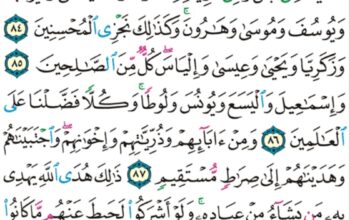 وَيُوسُفَ وَمُوسَىٰ وَهَٰرُونَ ۚ وَكَذَٰلِكَ نَجْزِى ٱلْمُحْسِنِينَ ٨٤
وَزَكَرِيَّا وَيَحْيَىٰ وَعِيسَىٰ وَإِلْيَاسَ ۖ كُلٌّ مِّنَ ٱلصَّٰلِحِينَ ٨٥
وَإِسْمَٰعِيلَ وَٱلْيَسَعَ وَيُونُسَ وَلُوطًا ۚ وَكُلًّا فَضَّلْنَا عَلَى
ٱلْعَٰلَمِينَ ٨٦ وَمِنْ ءَابَآئِهِمْ وَذُرِّيَّٰتِهِمْ وَإِخْوَٰنِهِمْ ۖ وَٱجْتَبَيْنَٰهُمْ
وَهَدَيْنَٰهُمْ إِلَىٰ صِرَٰطٍ مُّسْتَقِيمٍ ٨٧ ذَٰلِكَ هُدَى ٱللَّهِ يَهْدِى
بِهِۦ مَن يَشَآءُ مِنْ عِبَادِهِۦ ۚ وَلَوْ أَشْرَكُوا۟ لَحَبِطَ عَنْهُم مَّا كَانُوا۟